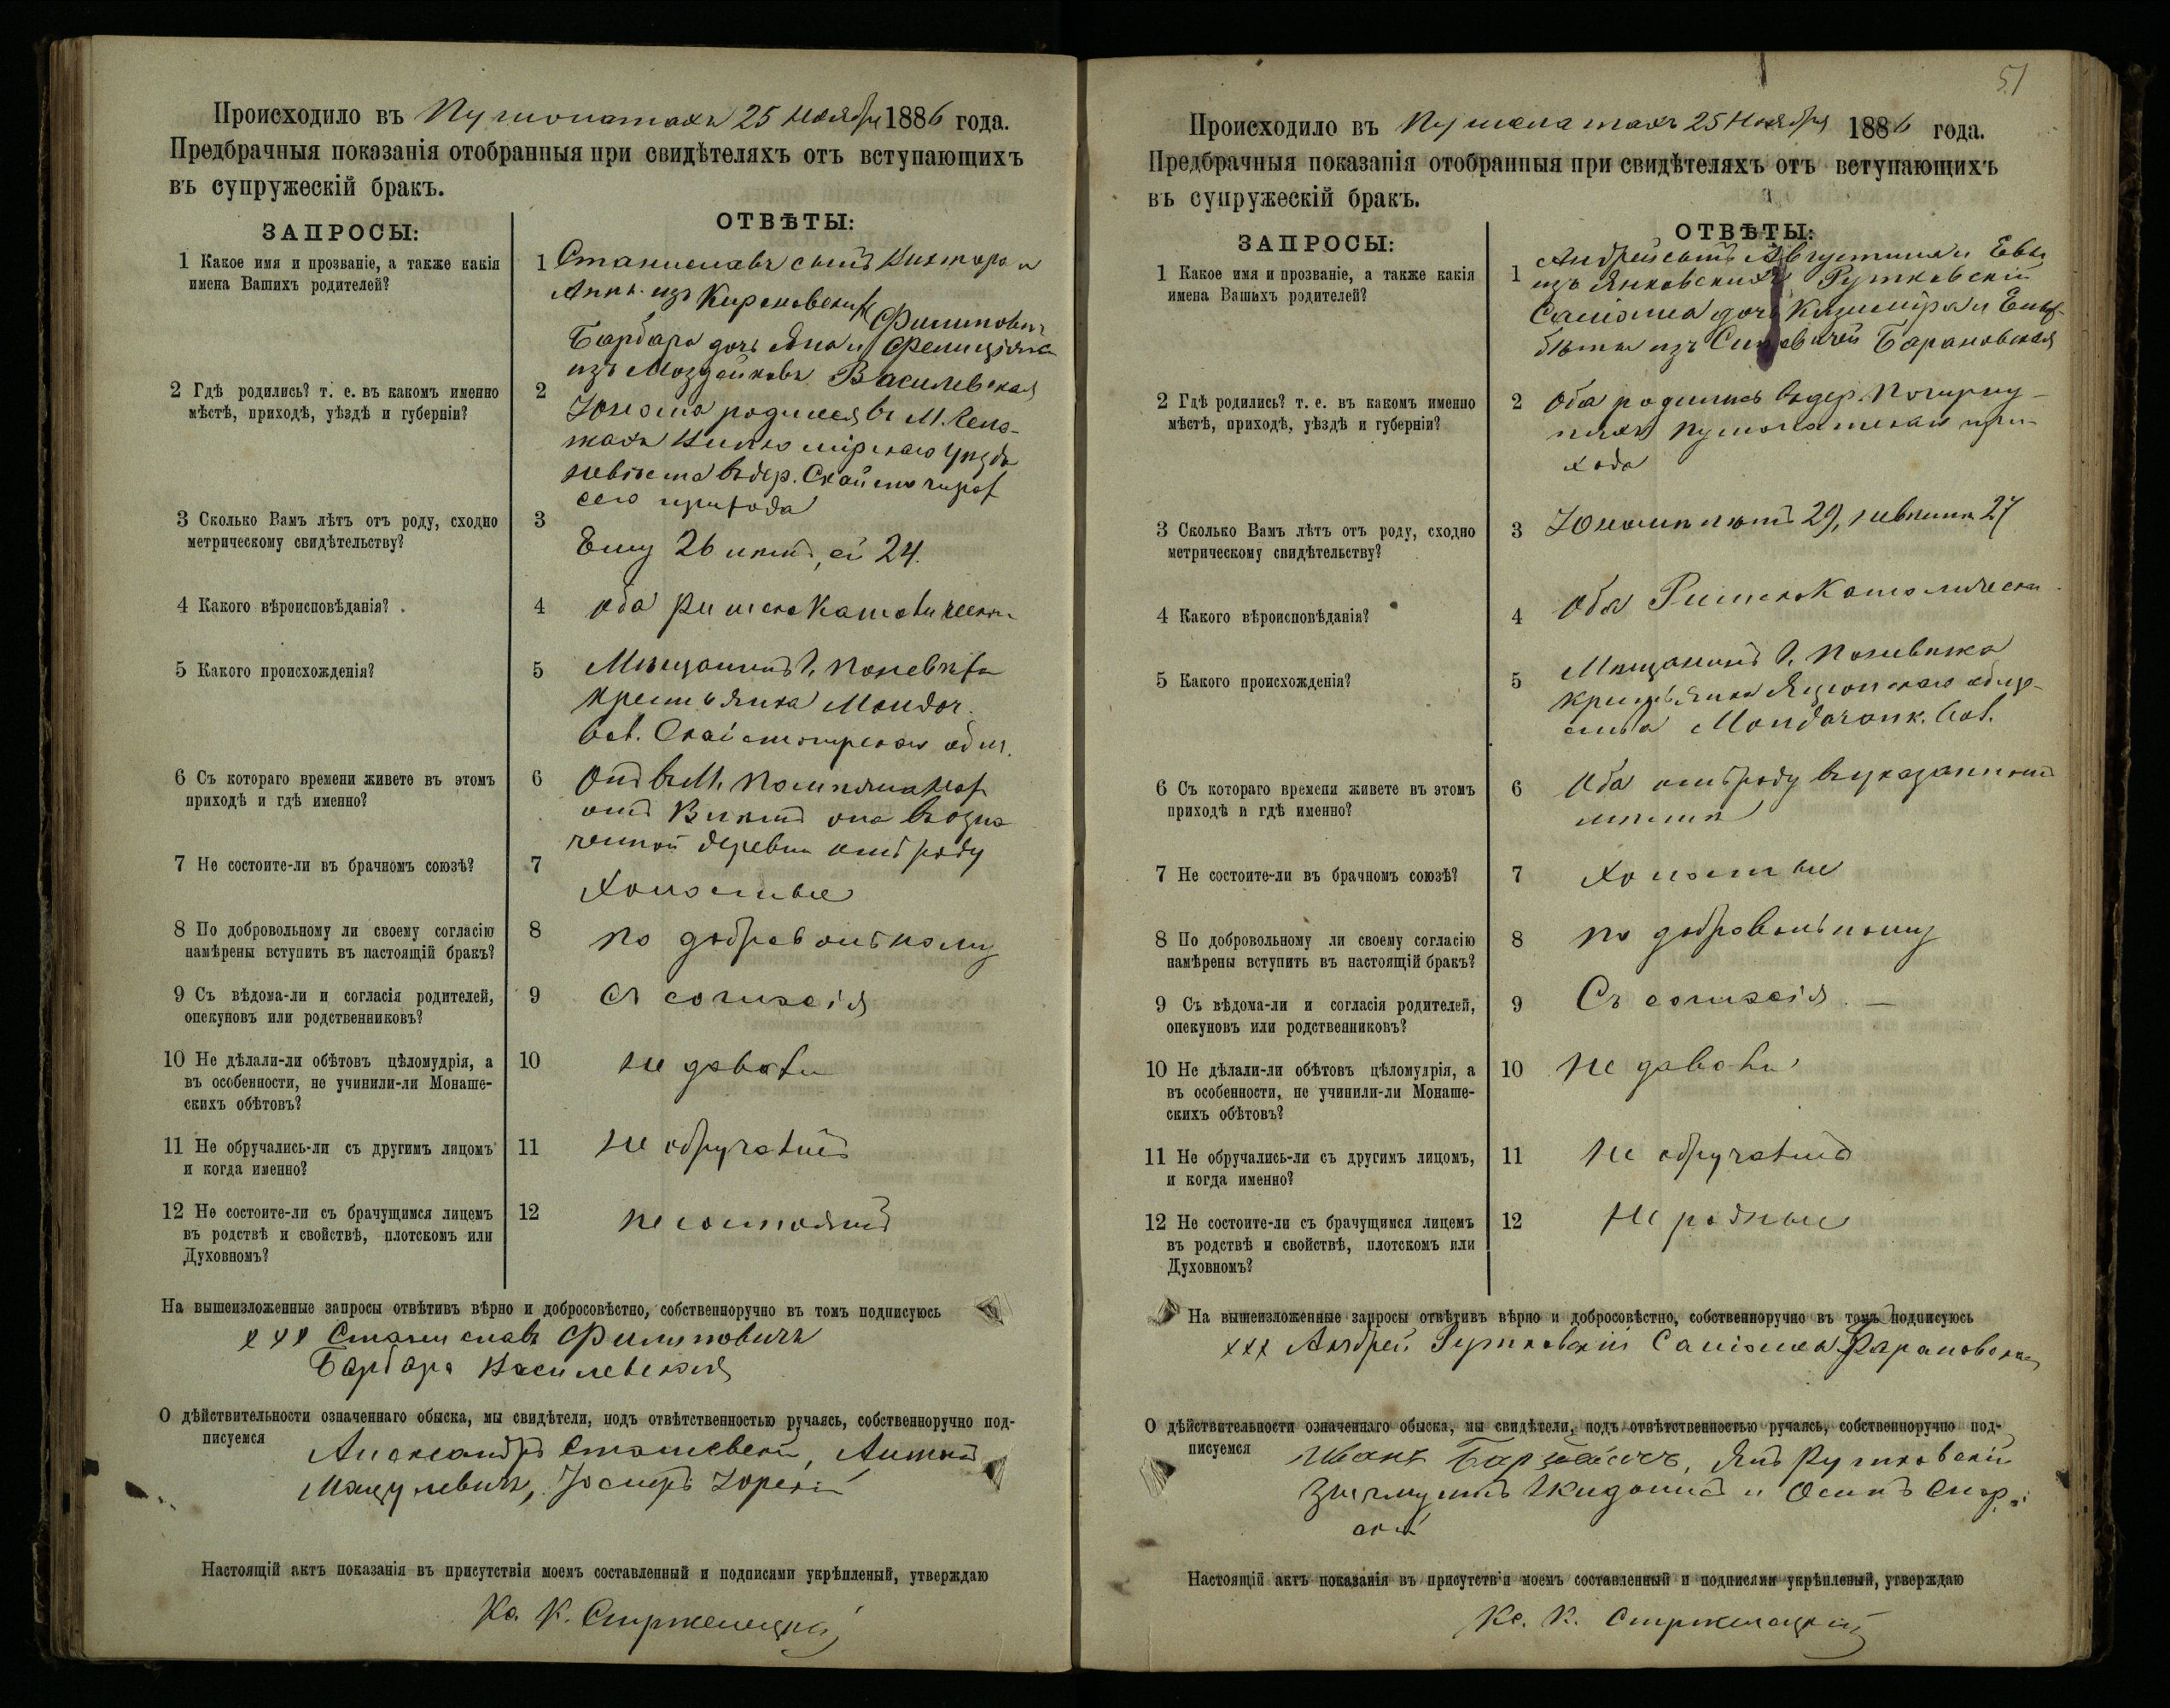 Происходило въ Пушолатахъ 25 Ноября 1886 года.
Предбрачныя показанія отобранныя при свидѣтеляхъ отъ вступающихъ
въ супружескій бракъ.
ЗАПРОСЫ:
ОТВѢТЫ:
1 Какое имя и прозваніе, а также какія
имена Вашихъ родителей?
1 Станиславъ сынъ Виктора и
Анны изъ
Филиповичъ
Барбара дочь Яна и Фелиціяны
изъ Василевская
2 Гдѣ родились? т. е. въ какомъ именно
мѣстѣ, приходѣ, уѣздѣ и губерніи?
2
Юноша родился въ М.
Вилкомірскаго уѣзда
невѣста въ дер.
сего прихода
3 Сколько Вамъ лѣтъ отъ роду, сходно
метрическому свидѣтельству?
3
Ему 26 лѣтъ, ей 24.
4 Какого вѣроисповѣданія?
4 Оба Римско Католическ.
5 Какого происхожденія?
5 Мѣщанинъ г. Поневѣжа
крестьянка
вол. общ.
6 Съ котораго времени живете въ этомъ
приходѣ и гдѣ именно?
6 Онъ въ М.
отъ лѣтъ она въ озна
ченной деревни отъ роду
7 Не состоите-ли въ брачномъ союзѣ?
7
Холостые
8 По добровольному ли своему согласію
намѣрены вступить въ настоящій бракъ?
8 По добровольному
9 Съ вѣдома-ли и согласія родителей,
опекуновъ или родственниковъ?
9 Съ согласія
10 Не дѣлали-ли обѣтовъ цѣломудрія, а
въ особенности, не учинили-ли Монаше-
скихъ обѣтовъ?
10 Не давали
11 Не обручались-ли съ другимъ лицомъ
и когда именно?
11 Не обручались
12 Не состоите-ли съ брачущимся лицемъ
въ родствѣ и свойствѣ, плотскомъ или
Духовномъ?
12 Не состоятъ
На вышеизложенные запросы отвѣтивъ вѣрно и добросовѣстно, собственноручно въ томъ подписуюсь
ххх Станиславъ Филиповичъ
Барбара Василевская
О дѣйствительности означеннаго обыска, мы свидѣтели, подъ отвѣтственностью ручаясь, собственноручно под-
писуемся
Александръ Антонъ
Іосифъ
Настоящій актъ показанія въ присутствіи моемъ составленный и подписями укрѣпленый, утверждаю
Кс. К.
51
Происходило въ Пушолатахъ 25 Ноября 1886 года.
Предбрачныя показанія отобранныя при свидѣтеляхъ отъ вступающихъ
въ супружескій бракъ.
ЗАПРОСЫ:
ОТВѢТЫ:
1 Какое имя и прозваніе, а также какія
имена Вашихъ родителей?
1 Андрей сынъ Августина и Евы
изъ Янковскихъ Рутковскій
Саломея дочь Казиміра и Елиз-
бѣты изъ Барановская
2 Гдѣ родились? т. е. въ какомъ именно
мѣстѣ, приходѣ, уѣздѣ и губерніи?
2 Оба родились въ дер.
Пушолатскаго при-
хода
3 Сколько Вамъ лѣтъ отъ роду, сходно
метрическому свидѣтельству?
3 Юноши лѣтъ 29, невѣсты 27
4 Какого вѣроисповѣданія?
4 Оба Римско Католическ.
5 Какого происхожденія?
5 Мѣщанинъ г. Поневѣжа
крестьянка общe-
ства вол.
6 Съ котораго времени живете въ этомъ
приходѣ и гдѣ именно?
6 Оба отъ роду въ указанномъ
мѣстѣ
7 Не состоите-ли въ брачномъ союзѣ?
7 Холостые
8 По добровольному ли своему согласію
намѣрены вступить въ настоящій бракъ?
8 По добровольному
9 Съ вѣдома-ли и согласія родителей,
опекуновъ или родственниковъ?
9 Съ согласія. —
10 Не дѣлали-ли обѣтовъ цѣломудрія, а
въ особенности, не учинили-ли Монаше-
скихъ обѣтовъ?
10 Не давали
11 Не обручались-ли съ другимъ лицомъ,
и когда именно?
11 Не обручались
12 Не состоите-ли съ брачущимся лицемъ
въ родствѣ и свойствѣ, плотскомъ или
Духовномъ?
12 Не родные
На вышеизложенные запросы отвѣтивъ вѣрно и добросовѣстно, собственноручно въ томъ подписуюсь
ххх Андрей Рутковскій Саломея Барановская
О дѣйствительности означеннаго обыска, мы свидѣтели, подъ отвѣтственностью ручаясь, собственноручно под-
писуемся
Иванъ Янъ Рутковскій
и Осипъ
Настоящій актъ показанія въ присутствіи моемъ составленный и подписями укрѣпленый, утверждаю
Кс. К.